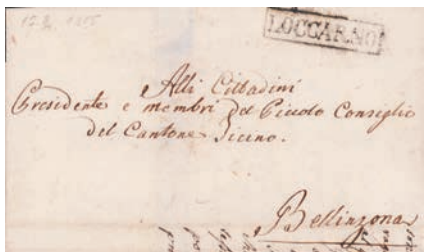 LOCCARNO
Alli Cittadini
Presidente e membri del Piccolo Consiglio
del Cantone Ticino.
Bellinzona